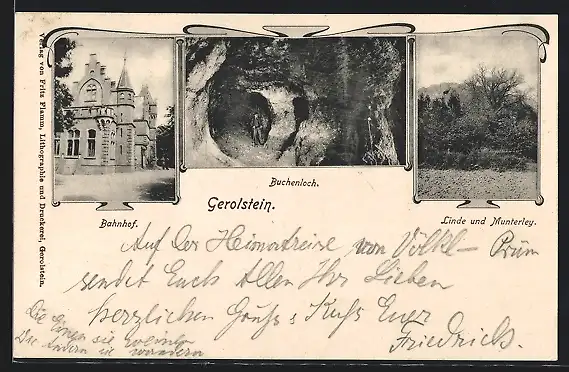 Verlag von Fritz Flamm, Lithographie und Druckerei, Gerolstein.
Buchenloch.
Gerolstein.
Bahnhof.
Linde und Munterley.
Auf der Heimatreise von Prüm
sendet Euch Allen Ihr Lieben
herzlichen Gruß & Kuß Euer
Friedrich.
Die sie
Die Andern wandern